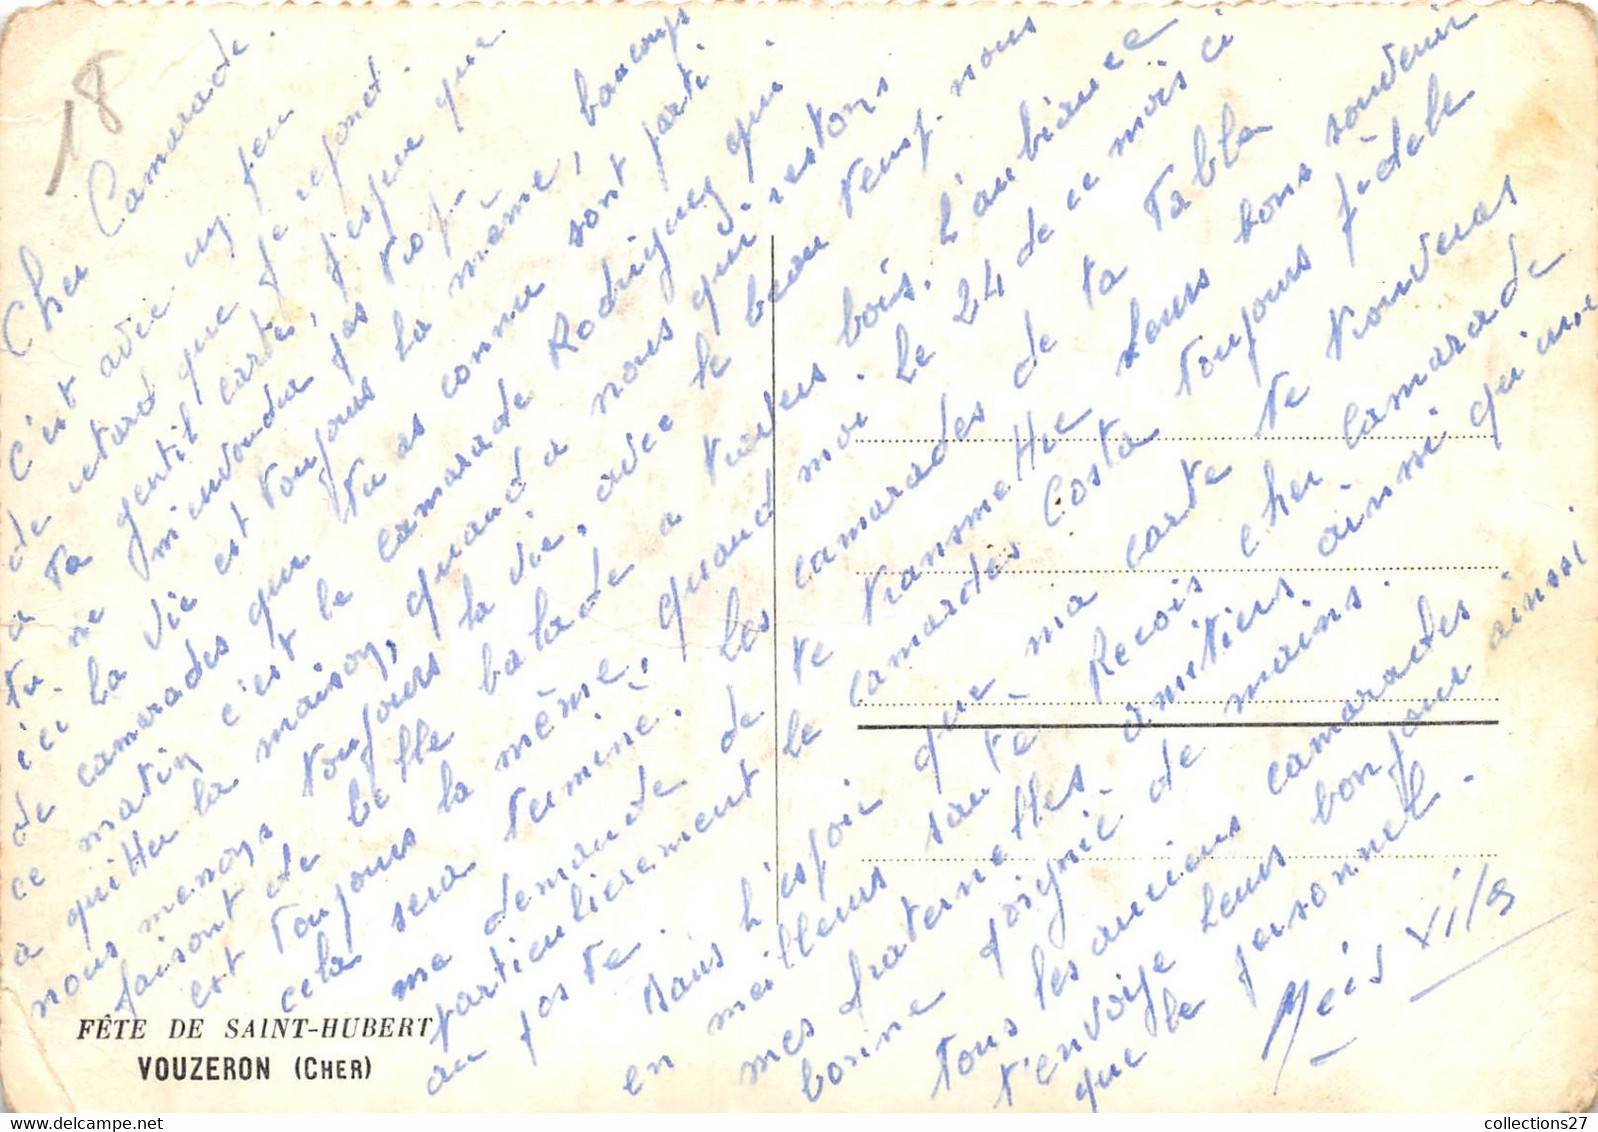 18
Cher Camarade.
C'est avec un peu
de retard que je repond.
a ta gentil carte, j'espere que
tu ne m'en voudra pas trop.
ici la vie est toujours la même, baucoups
de camarades que tu as connu sont parti
ce matin c'est le camarade Rodriguez qui
a quitter la maison, quand a nous qui restons
nous menons toujours la vie, avec le beau temps. nous
faisont de belle balade a travers bois. L'anbiance
est toujours la même, quand moi. Le 24 de ce mois ci
cela sera terminé. Les camarades de ta Table
me demande de te transmettre Leurs bons souvenir
particulierement le camardes Costa toujours fidele
au poste.
Dans l'espoir que ma carte te trouveras
en meilleurs santé. Recois cher Camarade
mes fraternelles amitiers ainssi qu'une
bonne poignie de mains.
Tous les anciens camarades
t'envoye Leurs bonjour ainssi
que le personnel.
FÊTE DE SAINT-HUBERT
VOUZERON (CHER)
collections27